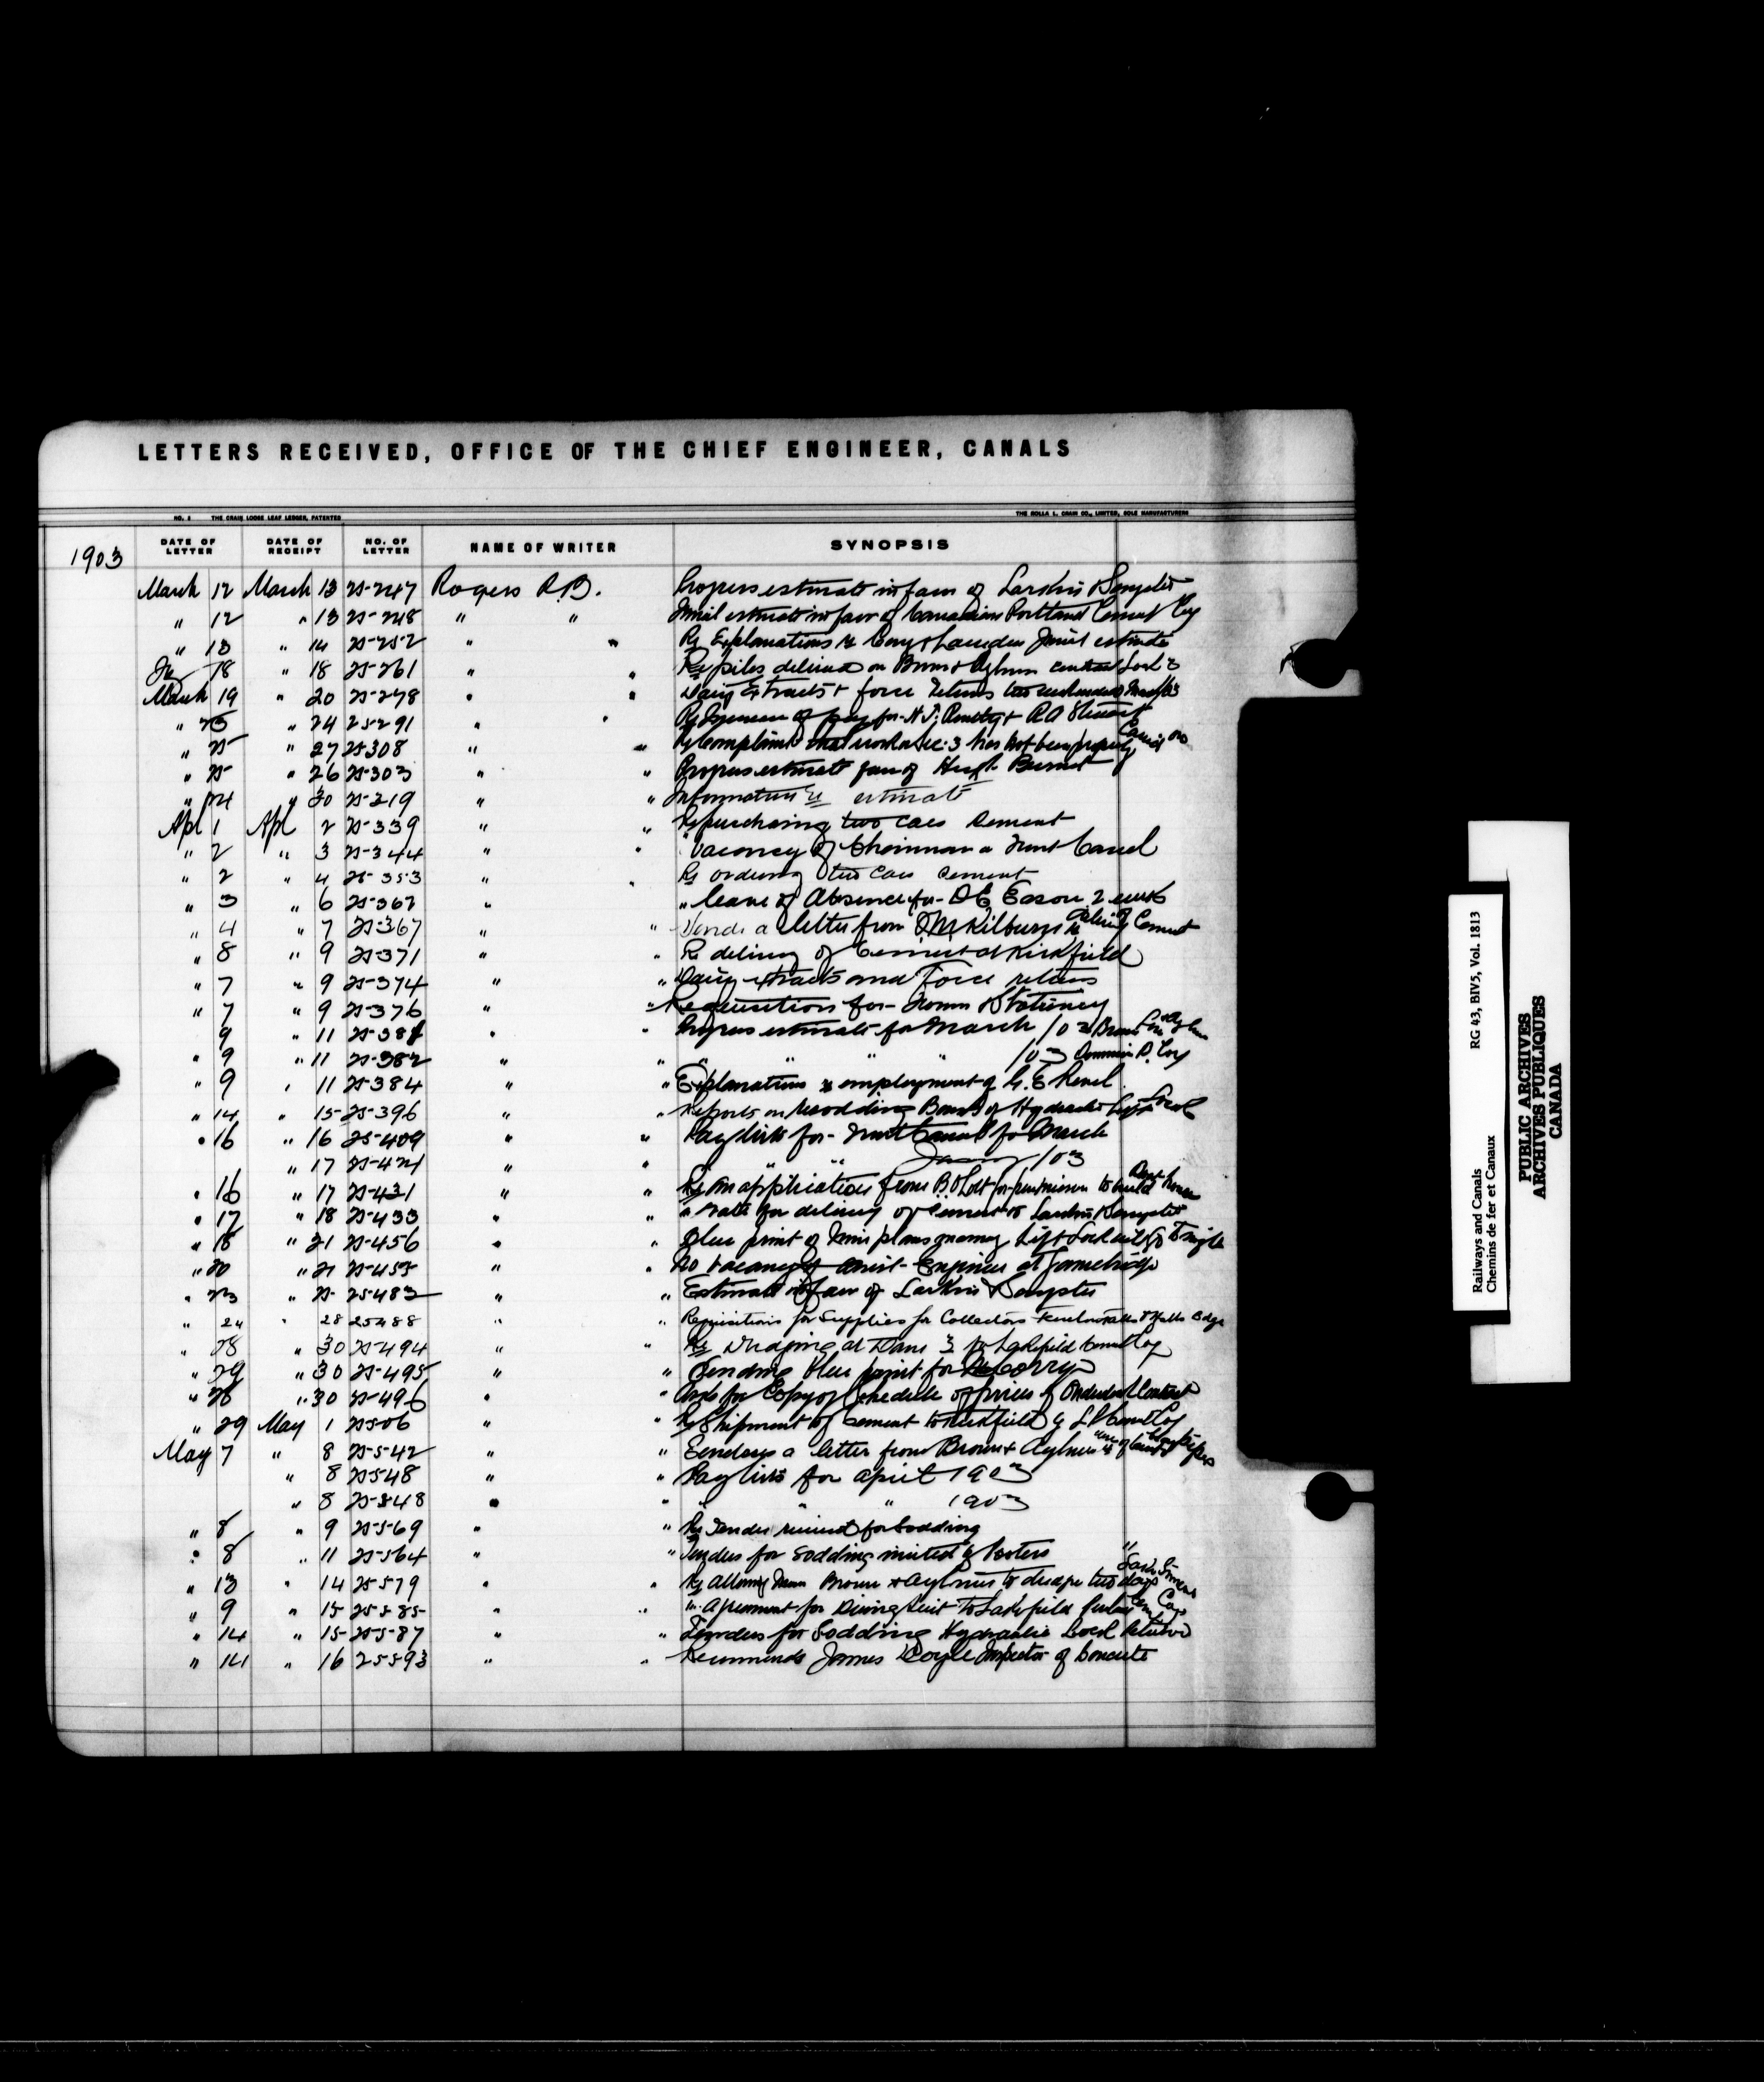 LETTERS RECEIVED, OFFICE OF THE CHIEF ENGINEER, CANALS
NO. 2 THE CRAIN LOOSE LEAF LEDGER, PATENTED THE ROLLA L. CRAIN CO., LIMITED, SOLE MANUFACTURERS
1903 DATE OF LETTER DATE OF RECEIPT NO. OF LETTER NAME OF WRITER SYNOPSIS
March 12 March 13 25-247 Rogers R.B. Progress estimate in favor of Larkin & Sangster
" 12 " 13 25-248 " " Final estimate in favor of Canadian Portland Cement Coy
" 13 " 14 25-252 " " Re Explanations re Corry & Laverdure Final estimate
18 " 18 25-261 " " Re piles delivered on Brown & Aylmer contract
March 19 " 20 25-278 " " Diary Extracts & force returns
" 25 " 24 25291 " " Re Increase of pay for
" 25 " 27 25308 " " Re Complaint that work on Sec. 3 has not been properly carried on
" 25 " 26 25-303 " " Progress estimate favor of Hugh
" 24 " 30 25-319 " " Information re estimate
Apl 1 Apl 2 25-339 " " Re purchasing two cars Cement
" 2 " 3 25-344 " " " Vacancy of Chainman on Trent Canal
" 2 " 4 25-353 " " Re ordering two cars cement
" 3 " 6 25-362 " " leave of Absence for D E Eason 2 weeks
" 4 " 7 25-367 " " Sends a letter from J M Kilbourn re delivery of Cement
" 8 " 9 25-371 " " Re delivery of Cement at Kirkfield
" 7 " 9 25-374 " " Diary extracts and Force returns
" 7 " 9 25-376 " " Requisition for Forms & Stationery
9 " 11 25-381 " " Progress estimate for March /03 Brown & Aylmer
" 9 " 11 25-382 " " " " " /03 Dominion B. Coy
" 9 " 11 25-384 " " Explanation re employment of G. E Revel
" 14 " 15-25-396 " " Reports on resodding Banks of Hydraulic Lift Lock
" 16 " 16 25-409 " " Pay lists for Trent Canal for March
" 17 25-421 " " " " /03
" 16 " 17 25-431 " " Re an application from B. Holt for permission to build Boat house
" 17 " 18 25-433 " " " rate for delivery of Cement to Larkin & Sangster
" 18 " 21 25-456 " " Blue print of
" 20 " 21 25-455 " " No vacancy of Assist-Engineer at
" 23 " 25- 25-483 " " Estimate in favor of Larkin & Sangster
" 24 " 28 25488 " " Requisitions for Supplies for Collectors Fenelon Falls & Bdge
" 28 " 30 25-494 " " Re Dredging at Dam 3 to Lakefield Cement Coy
" 29 " 30 25-495 " " Sending blue print for
" 28 " 30 25-496 " " Asks for Copy of Schedule of prices of Contract
" 29 May 1 25506 " " Re Shipment of cement to Kirkfield by L P Cement Coy
May 7 " 8 25-542 " " Encloses a letter from Brown & Aylmer re
" 8 25548 " " Pay lists for April 1903
" 8 25-548 " " " " " 1903
" 8 " 9 25-569 " " Re Tender received for Sodding
" 8 " 11 25-564 " " Tenders for Sodding invited by Posters
" 13 " 14 25579 " " Re Allowing Brown & Aylmer to dredge two days
" 9 " 15 25585 " " " Agreement for Diving Suit to Lakefield Portland Cem Coy
" 14 " 15- 25-587 " " Tenders for Sodding Hydraulic Lock
" 14 " 16 25593 " " Recommends James Coyle Inspector of Concrete
Railways and Canals RG 43, BIV5, Vol. 1813
Chemins de fer et Canaux
PUBLIC ARCHIVES
ARCHIVES PUBLIQUES
CANADA